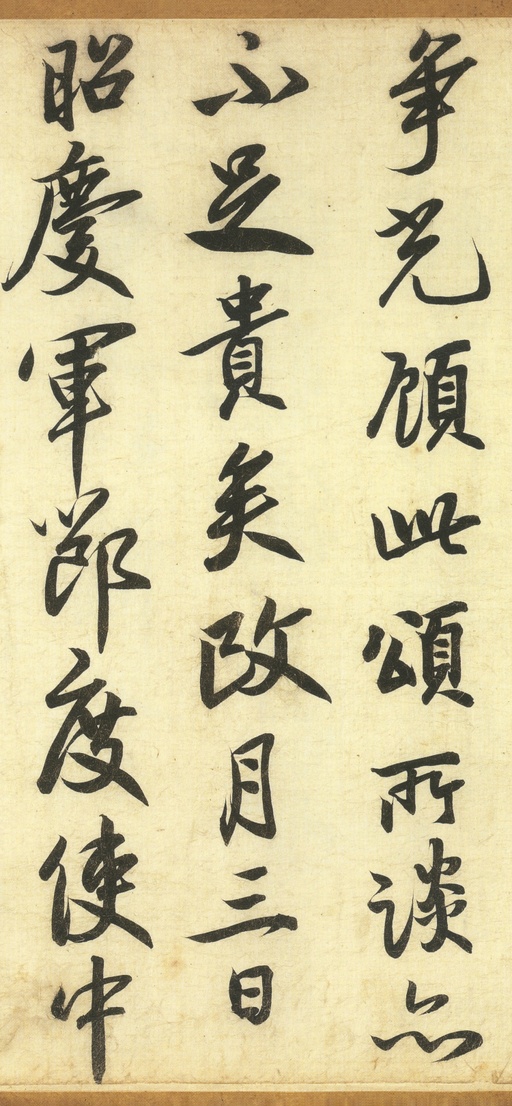 争光顧此頌所談亦
不足貴矣改月三日
昭慶軍節度使中